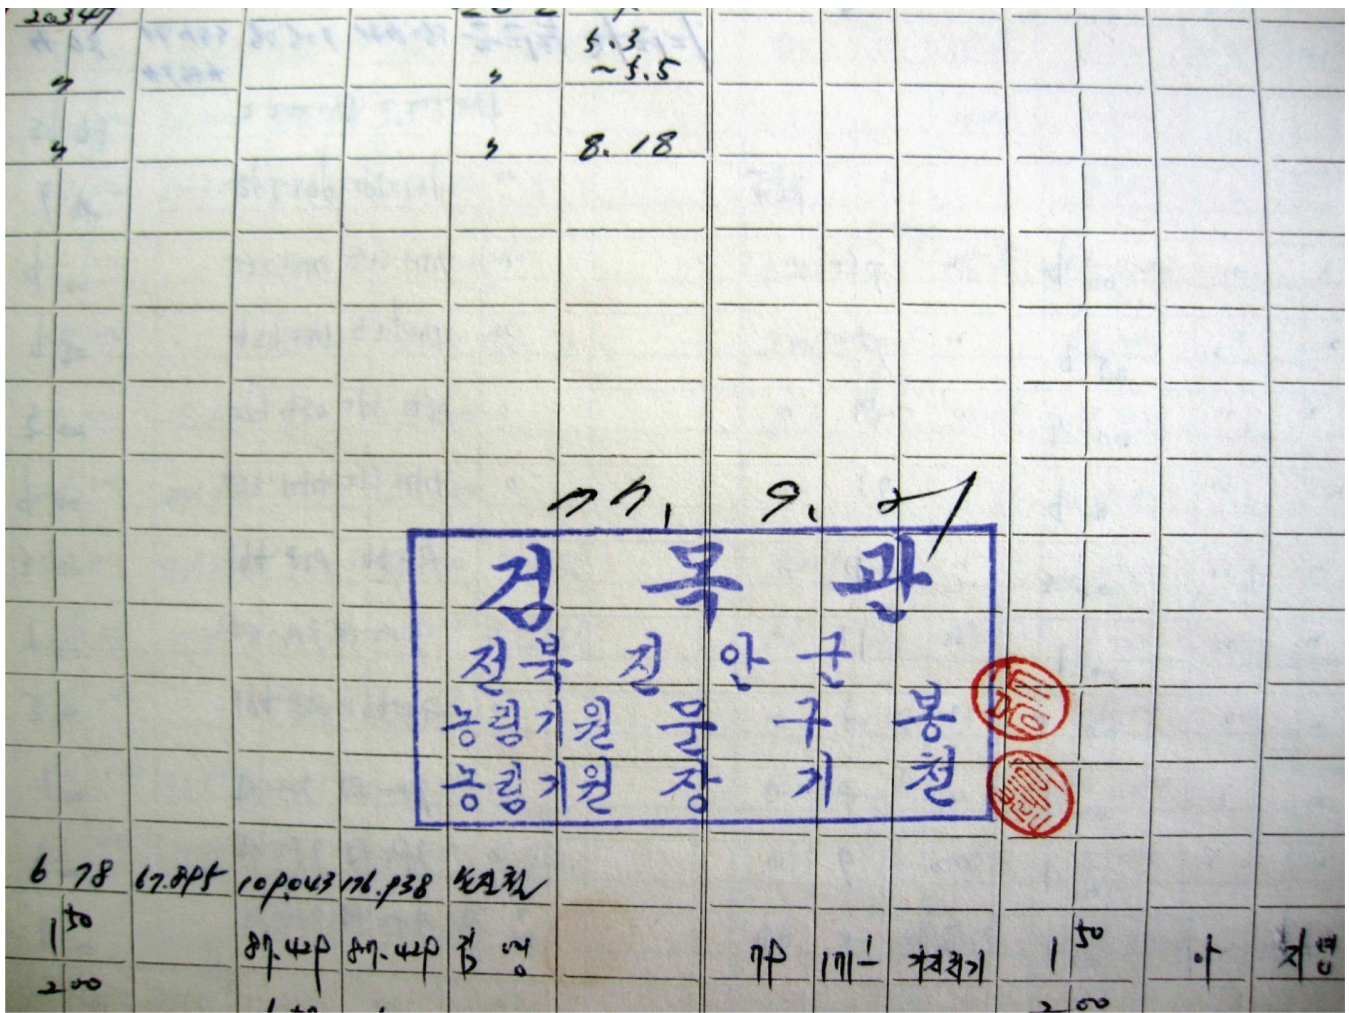 20347
5.3
〃 〃 ~5.5
〃 〃 8.18
77. 9. 21
검 목 관
전북 진안군
농림기원 문 구 봉
농림기원 장 기 철
6 78 67.895 109.043 176.938
1 50 87.429 87.429 79 171-1 1 50 아
2 00 2 00